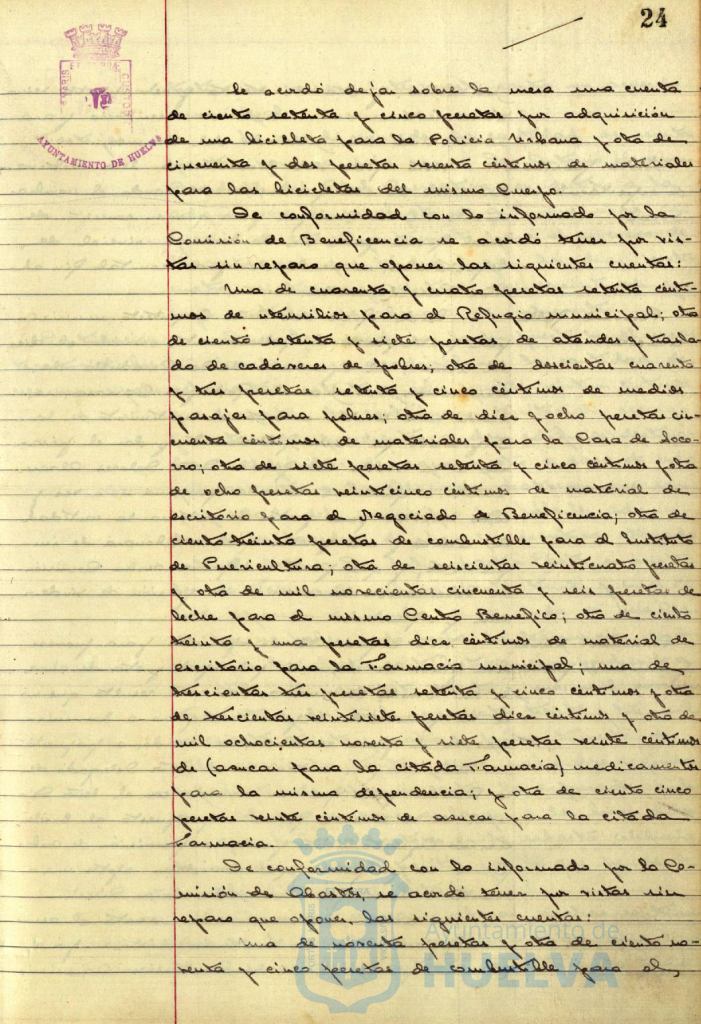 24
AYUNTAMIENTO DE HUELVA
Se acordó dejar sobre la mesa una cuenta
de ciento setenta y cinco pesetas por adquisición
de una bicicleta para la Policia Urbana y otra de
cincuenta y dos pesetas sesenta céntimos de materiales
para las bicicletas del mismo Cuerpo.
De conformidad con lo informado por la
Comisión de Beneficencia se acordó tener por vis-
tas sin reparo que oponer las siguientes cuentas:
Una de cuarenta y cuatro pesetas setenta cénti-
mos de utensilios para el Refugio municipal; otra
de ciento setenta y siete pesetas de ataudes y trasla-
do de cadáveres de pobres; otra de doscientas cuarenta
y tres pesetas setenta y cinco céntimos de medios
pasajes para pobres; otra de diez y ocho pesetas cin-
cuenta céntimos de materiales para la Casa de Soco-
rro; otra de siete pesetas setenta y cinco céntimos y otra
de ocho pesetas veinticinco céntimos de material de
escritorio para el Negociado de Beneficencia; otra de
ciento treinta pesetas de combustible para el Instituto
de Puericultura; otra de seiscientas veinticuatro pesetas
y otra de mil novecientas cincuenta y seis pesetas de
leche para el mismo Centro Benefico; otra de ciento
treinta y una pesetas diez céntimos de material de
escritorio para la Farmacia municipal; una de
trescientas tres pesetas setenta y cinco céntimos y otra
de trescientas veintisiete pesetas diez céntimos y otra de
mil ochocientas noventa y siete pesetas veinte céntimos
de (azucar para la citada Farmacia) medicamentos
para la misma dependencia; y otra de ciento cinco
pesetas veinte céntimos de azucar para la citada
Farmacia.
De conformidad con lo informado por la Co-
misión de Abastos, se acordó tener por vistas sin
reparo que oponer, las siguientes cuentas:
Una de noventa pesetas y otra de ciento no-
venta y cinco pesetas de combustible para el
Ayuntamiento de
HUELVA